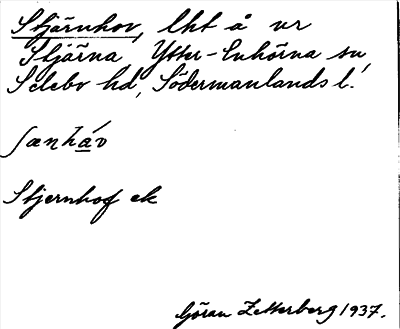 Stjärnhov, lht å vr
Stjärna, Ytter-Enhörna sn,
Selebo hd, Södermanlands l.
Stjernhof ek
Göran Zetterberg 1937.